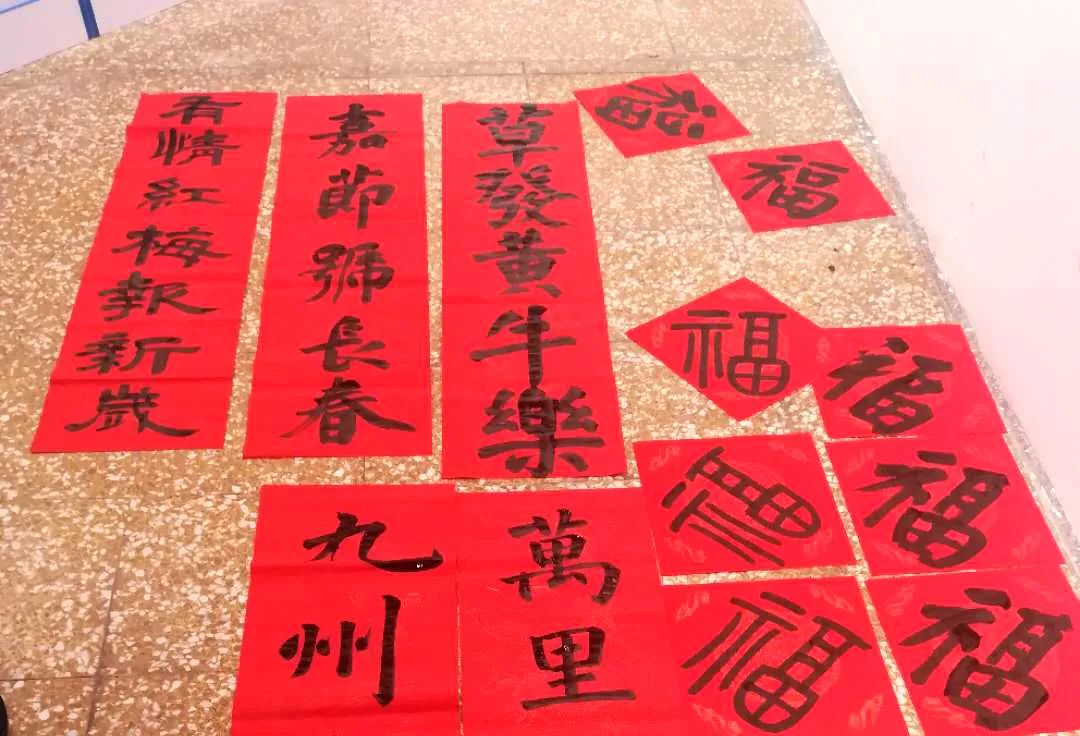 有情紅梅報新歲
嘉節號長春
草發黃牛樂
福
福
福
福
福
福
福
福
九州
萬里